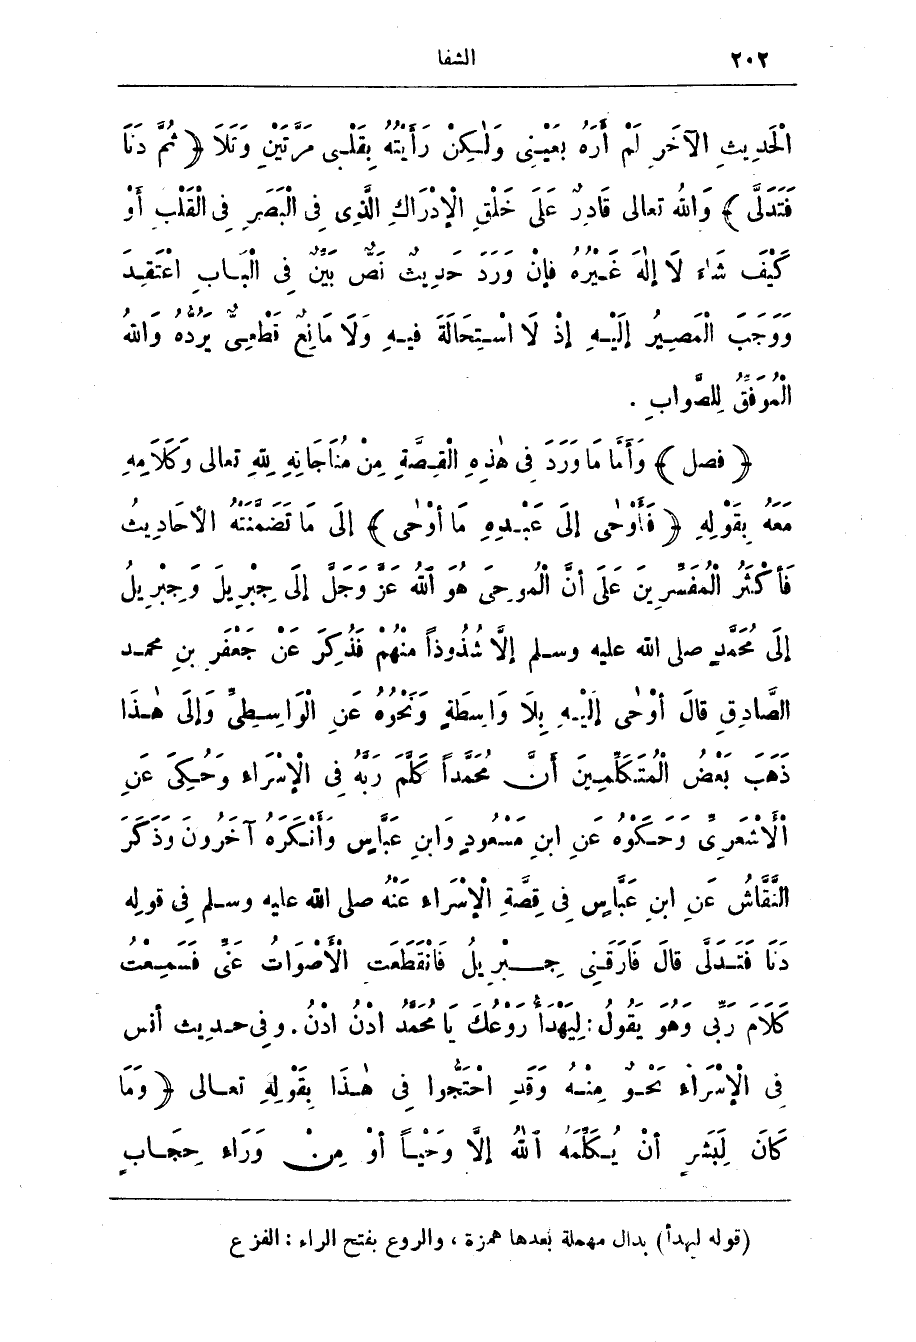 ٢٠٢ الشفا
الْحَدِيثِ الآخَرِ لَمْ أَرَهُ بِعَيْنِى وَلٰكِنْ رَأَيْتُهُ بِقَلْبِى مَرَّتَيْنِ وَتَلَا ﴿ ثُمَّ دَنَا
فَتَدَلَّى ﴾ وَاللهُ تعالى قَادِرٌ عَلَى خَلْقِ الْإِدْرَاكِ الَّذِى فِى الْبَصَرِ فِى الْقَلْبِ أَوْ
كَيْفَ شَاءَ لَا إِلٰهَ غَيْرُهُ فَإِنْ وَرَدَ حَدِيثٌ نَصٌّ بَيِّنٌ فِى الْبَابِ اعْتَقِدَ
وَوَجَبَ الْمَصِيرُ إِلَيْهِ إِذْ لَا اسْتِحَالَةَ فِيهِ وَلَا مَانِعٌ قَطْعِىٌّ يَرُدُّهُ وَاللهُ
الْمُوَفِّقُ لِلصَّوابِ .
﴿ فصل ﴾ وَأَمَّا مَا وَرَدَ فِى هٰذِهِ الْقِصَّةِ مِنْ مُنَاجَاتِهِ لِلّٰهِ تعالى وَكَلَامِهِ
مَعَهُ بِقَوْلِهِ ﴿ فَأَوْحٰى إِلَى عَبْدِهِ مَا أَوْحٰى ﴾ إِلَى مَا تَضَمَّنَتْهُ الأَحَادِيثُ
فَأَكْثَرُ الْمُفَسِّرِينَ عَلَى أَنَّ الْمُوحِىَ هُوَ اللهُ عَزَّ وَجَلَّ إِلَى جِبْرِيلَ وَجِبْرِيلُ
إِلَى مُحَمَّدٍ صلى الله عليه وسلم إِلَّا شُذُوذاً مِنْهُمْ فَذُكِرَ عَنْ جَعْفَرِ بنِ محمد
الصَّادِقِ قَالَ أَوْحٰى إِلَيْهِ بِلَا وَاسِطَةٍ وَنَحْوُهُ عَنِ الْوَاسِطِىِّ وَإِلَى هٰذَا
ذَهَبَ بَعْضُ الْمُتَكَلِّمِينَ أَنَّ مُحَمَّداً كَلَّمَ رَبَّهُ فِى الْإِسْرَاءِ وَحُكِىَ عَنِ
الْأَشْعَرِىِّ وَحَكَوْهُ عَنِ ابنِ مَسْعُودٍ وَابنِ عَبَّاسٍ وَأَنْكَرَهُ آخَرُونَ وَذَكَرَ
النَّقَّاشُ عَنِ ابنِ عَبَّاسٍ فِى قِصَّةِ الْإِسْرَاءِ عَنْهُ صلى الله عليه وسلم فِى قوله
دَنَا فَتَدَلَّى قَالَ فَارَقَنِى جِبْرِيلُ فَانْقَطَعَتِ الْأَصْوَاتُ عَنِّى فَسَمِعْتُ
كَلَامَ رَبِّى وَهُوَ يَقُولُ: لِيَهْدَأْ رَوْعُكَ يَا مُحَمَّدُ ادْنُ ادْنُ. وفى حديث أنس
فِى الْإِسْرَاءِ نَحْوٌ مِنْهُ وَقَدِ احْتَجُّوا فِى هٰذَا بِقَوْلِهِ تعالى ﴿ وَمَا
كَانَ لِبَشَرٍ أَنْ يُكَلِّمَهُ اللهُ إِلَّا وَحْياً أَوْ مِنْ وَرَاءِ حِجَابٍ
(قوله ليهدأ) بدال مهملة بعدها همزة، والروع بفتح الراء : الفزع